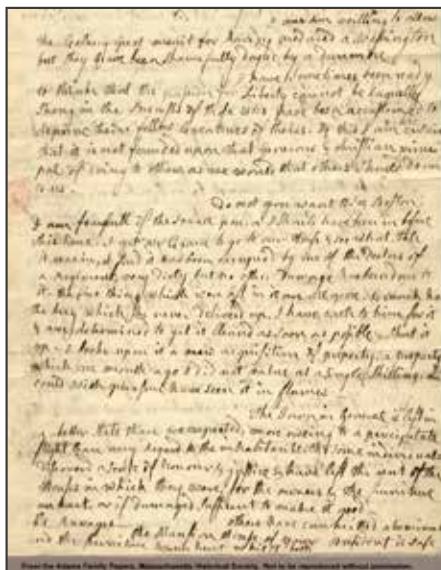 I am willing to allow
the Colony great merrit for having produced a Washington
but they have been shamefully duped by a Dunmore
I have sometimes been ready
to think that the passion for Liberty cannot be Eaquelly
Strong in the Breasts of those who have been accustomed to
deprive their fellow Creatures of theirs. Of this I am certain
that it is not founded upon that generous & christian princi
pal of doing to others as we would that others should do un
to us.
Do not you want to see Boston;
I am fearfull of the small pox, or I should have been in before
this time. I got mr Crane to go to our House & see what state
it was in, I find it has been occupied by one of the Doctors of
a Regiment, very dirty but no other Damage has been done to
it. the few things which were left in it are all gone. Cranch has
the key which he never deliverd up. I have wrote to him for it
& am determined to get it cleand as soon as possible & shut it
up. I look upon it a new acquisition of property, a property
which one month ago I did not value at a single Shilling, &
could with pleasure have seen it in flames
The Town in General is left in
a better state than we expected, more oweing to a percipitate
flight than any regard to the inhabitants, tho some individuals
discoverd a sense of honour & justice & have left the rent of the
Houses in which they were, for the owners & the furniture
unhurt, or if damaged sufficent to make it good
others have committed abominable
Ravages the Mansion House of your President is safe
and the furniture unhurt whilst both
From the Adams Family Papers, Massachusetts Historical Society. Not to be reproduced without permission.